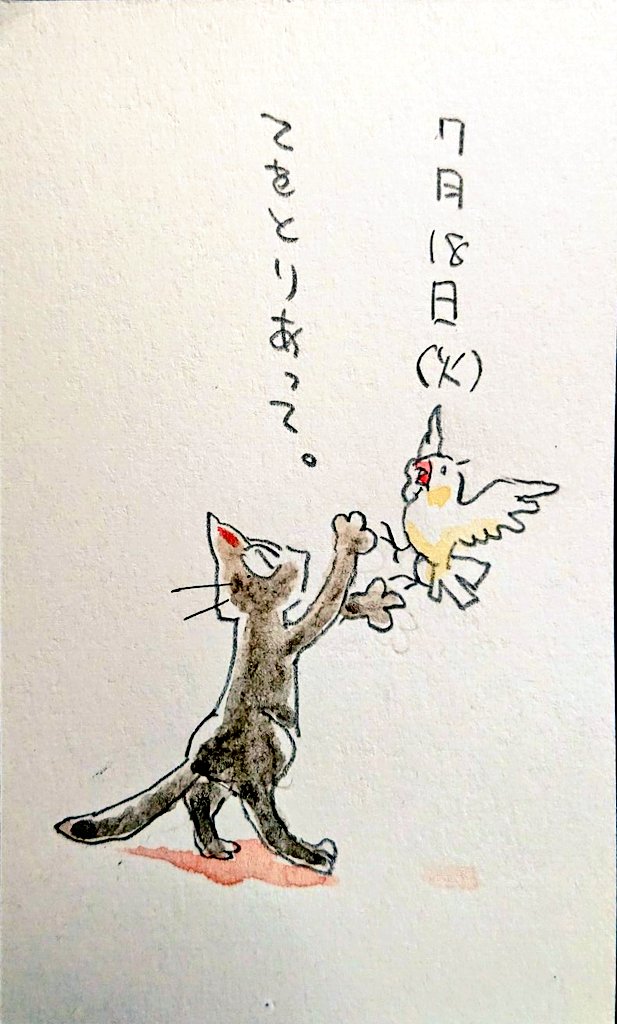 7月18日(火)
てをとりあって。